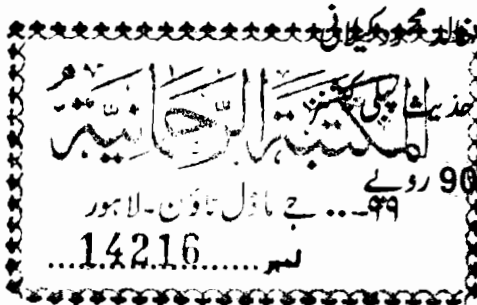 خالد محمود کیلانی
حدیث پبلی کیشنز
المكتبة الرحمانية
90 روپے
۹۹۔... جے ماڈل ٹاؤن۔لاہور
نمبر......14216...